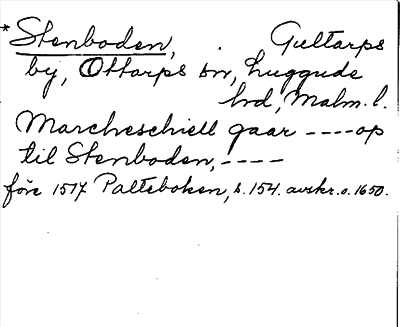 *Stenboden, . Gultarps
by, Ottarps sn, Luggude
hd, Malm. l.
Marcheschiell gaar ---- op
til Stenboden, ----
före 1517 Palteboken, s. 154. avskr. o. 1650.